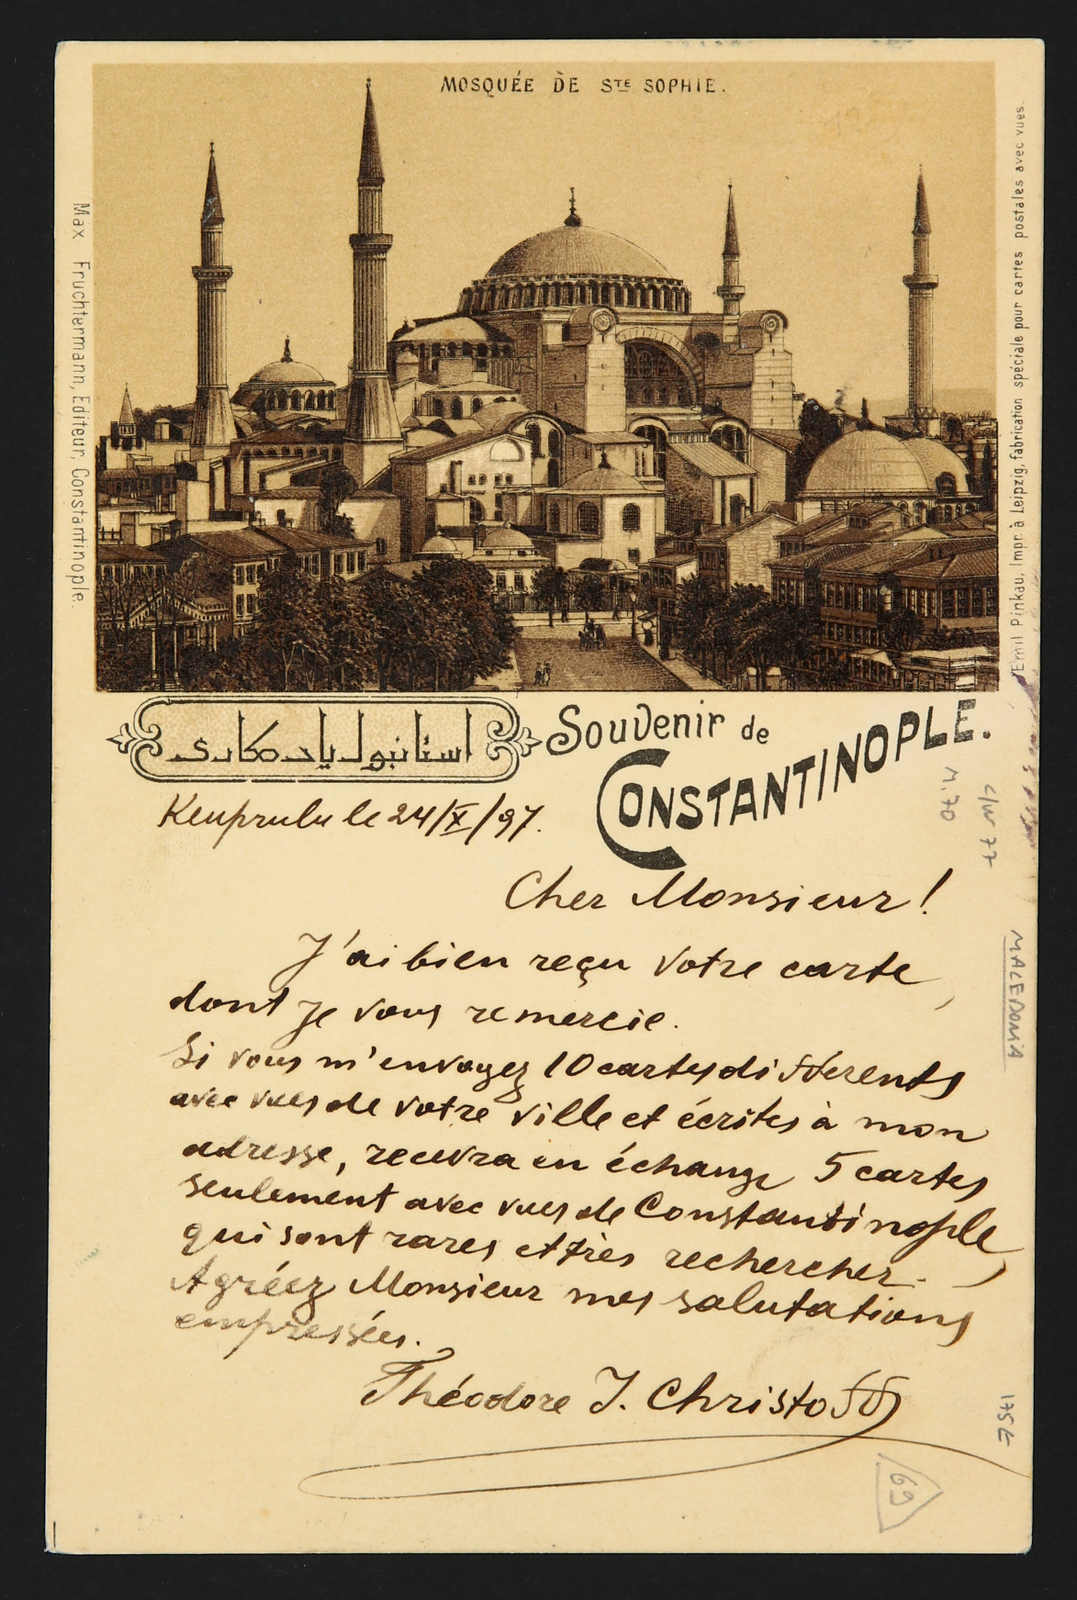 MOSQUÉE DE STE SOPHIE.
Max Fruchtermann, Editeur, Constantinople.
Emil Pinkau, Impr. à Leipzig, fabrication spéciale pour cartes postales avec vues.
استانبول يادكارى
Souvenir de
CONSTANTINOPLE.
Keuprulu le 24/X/97.
Cher Monsieur!
J'ai bien reçu votre carte,
dont je vous remercie.
Si vous m'envoyez 10 cartes différents
avec vues de votre ville et écrites à mon
adresse, recevra en échange 5 cartes
seulement avec vues de Constantinople,
qui sont rares et très rechercher.
Agréez Monsieur mes salutations
empressées.
Théodore J. Christoff
MACEDONIA
69